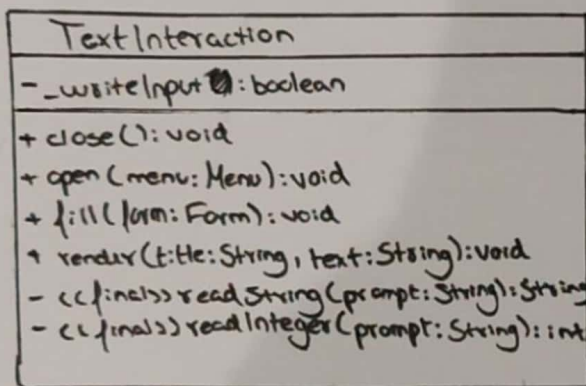 TextInteraction
- _writeInput : boolean
+ close(): void
+ open(menu: Menu): void
+ fill(form: Form): void
+ render(title: String, text: String): void
- <<final>> readString(prompt: String): String
- <<final>> readInteger(prompt: String): int